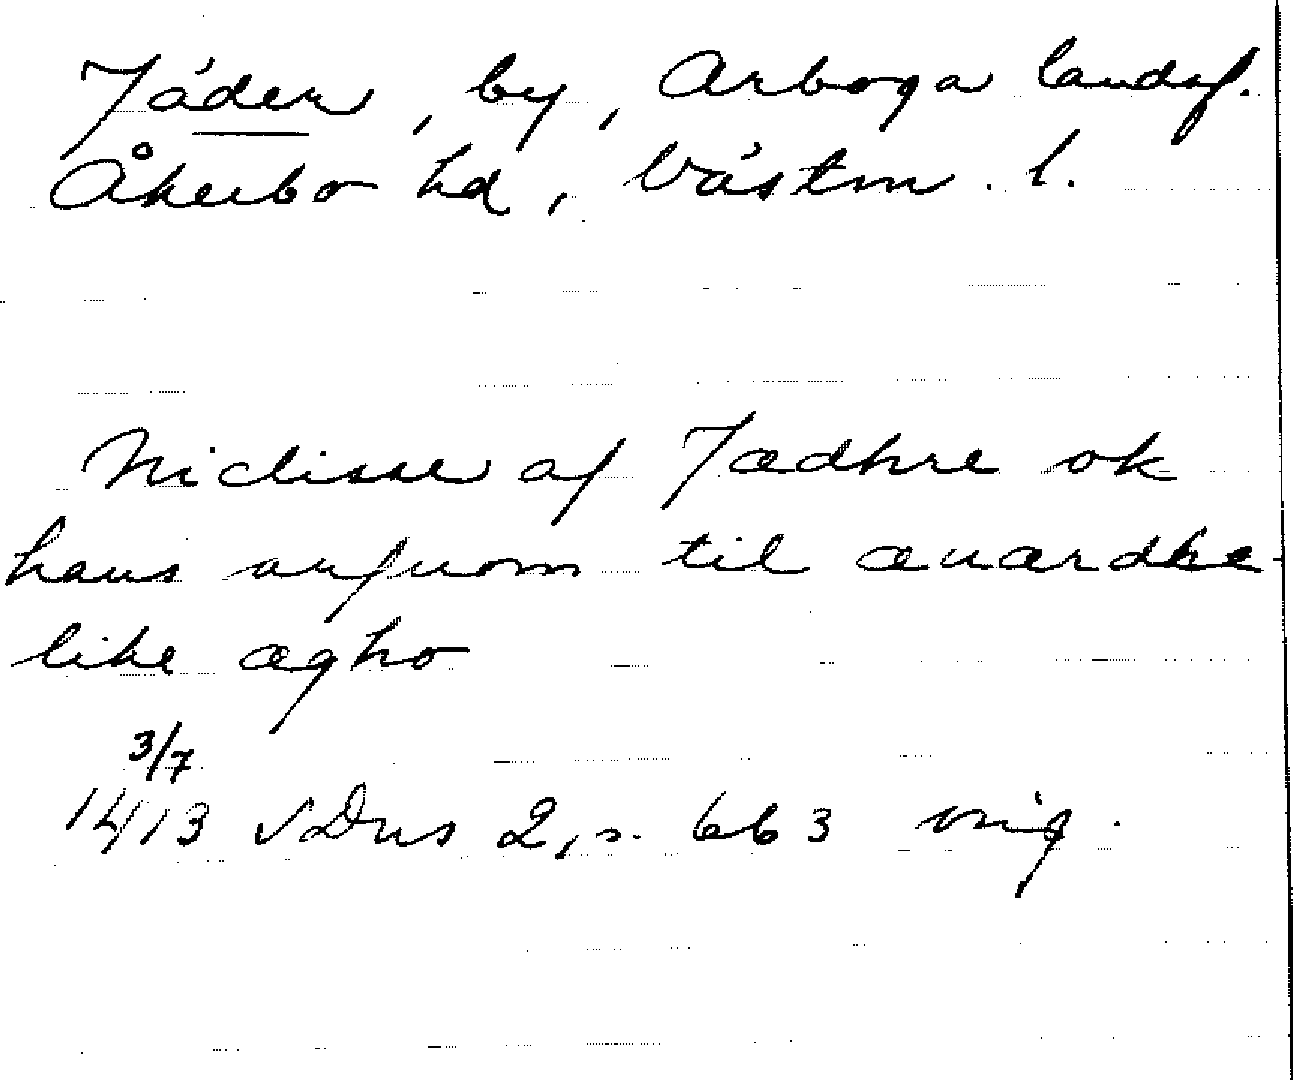 Jäder, by, Arboga landsf.
Åkerbo hd, Västm. l.
Niclisse af Jædhre ok
hans arfuom til æuærdhe-
like ægho
3/7
1413 SDns 2, s. 663 orig.